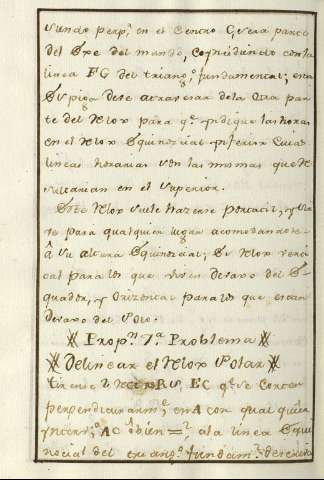 perp.r en el Centro C, sera parte
del Exe del mundo, coyncidiendo con la
linea EG del triang.o fundamental; esta
Espiga deve atravesar de la otra par
te del Relox para q.e yndique las horas
en el Relox Equinoccial ynferior Cuias
lineas horarias son las mesmas que
en el Superior.
Este Relox suele hazerse Portatil, y
se para qualquier lugar acomodandole
â su altura Equinoccial; Es Relox verti
cal para los que viven devaxo del E
quador, y Orizontal para los que estan
devaxo del Polo.
Prop.n 7.a Problema
Delinear el Relox Polar
Tirense 2 Rectas RS, EC q.e se Corten
perpendicularm.te en A con qual quier
AC ô bien =.l â la linea Equi
noccial del triang.o fundam.l